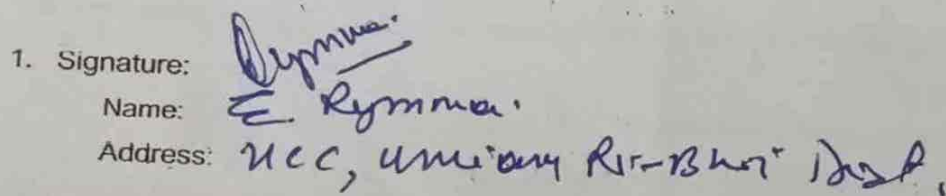 1. Signature: Rymmai.
Name: E. Rymmai.
Address: UCC, Umiam, Ri-Bhoi Dist,